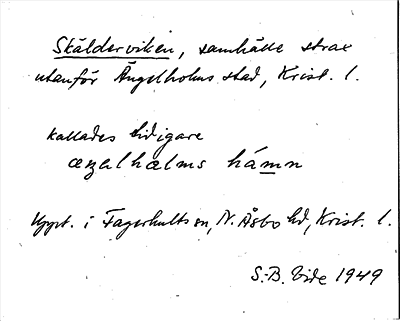 Skälderviken, samhälle strax
utanför Ängelholms stad, Krist. l.
kallades tidigare
æŋəlhælms hámn
Uppt. i Fagerhults sn, N. Åsbo hd, Krist. l.
S.-B. Vide 1949